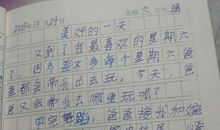 2018年10月29日 星期六 天气 晴
美好的一天
又到了我最喜欢的星期六
了，因为差不多每个星期六爸
爸都会带我出去玩。今天，爸
爸又会带我去哪里玩呢？
中午舞蹈，爸爸接我和